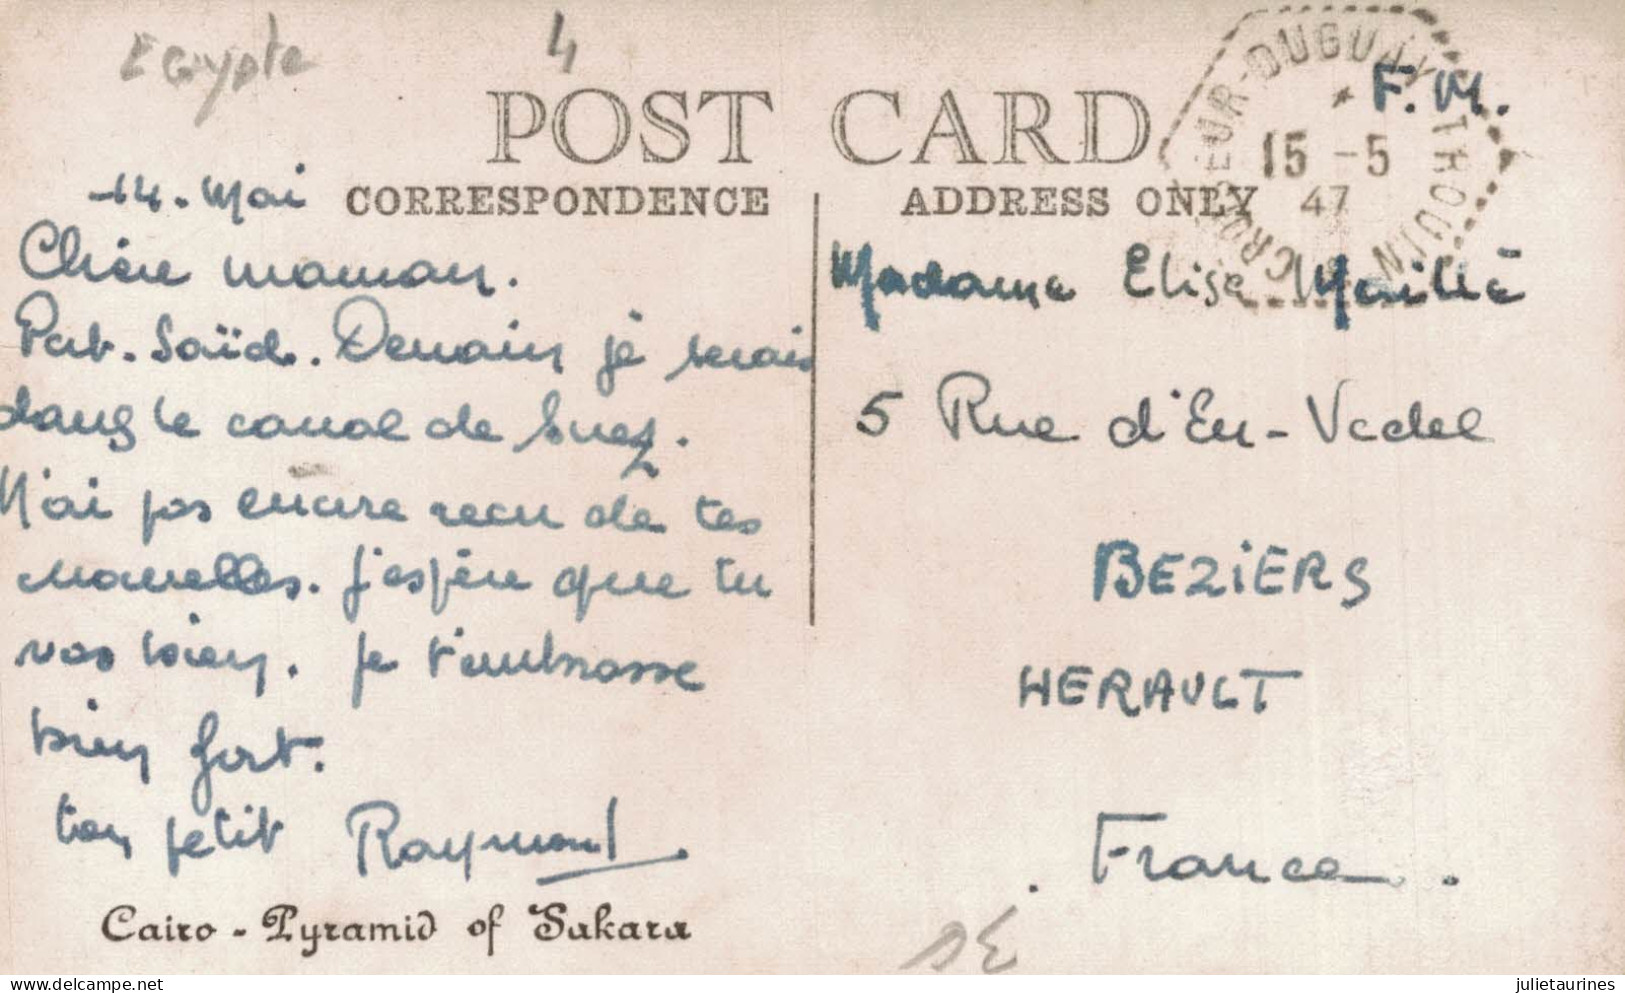 Egypte
4
POST CARD
CORRESPONDENCE
ADDRESS ONLY
CROISEUR-DUGUAY-TROUIN
15 -5
47
F. M.
14. Mai
Chère maman.
Port. Saïd. Demain je serais
dans le canal de Suez.
N'ai pas encore reçu de tes
nouvelles. J'espère que tu
vas bien. Je t'embrasse
bien fort.
ton petit Raymond.
Cairo - Pyramid of Sakara
Madame Elise
5 Rue d'En-Vedel
BEZiERS
HERAULT
France.
delcampe.net
julietaurines